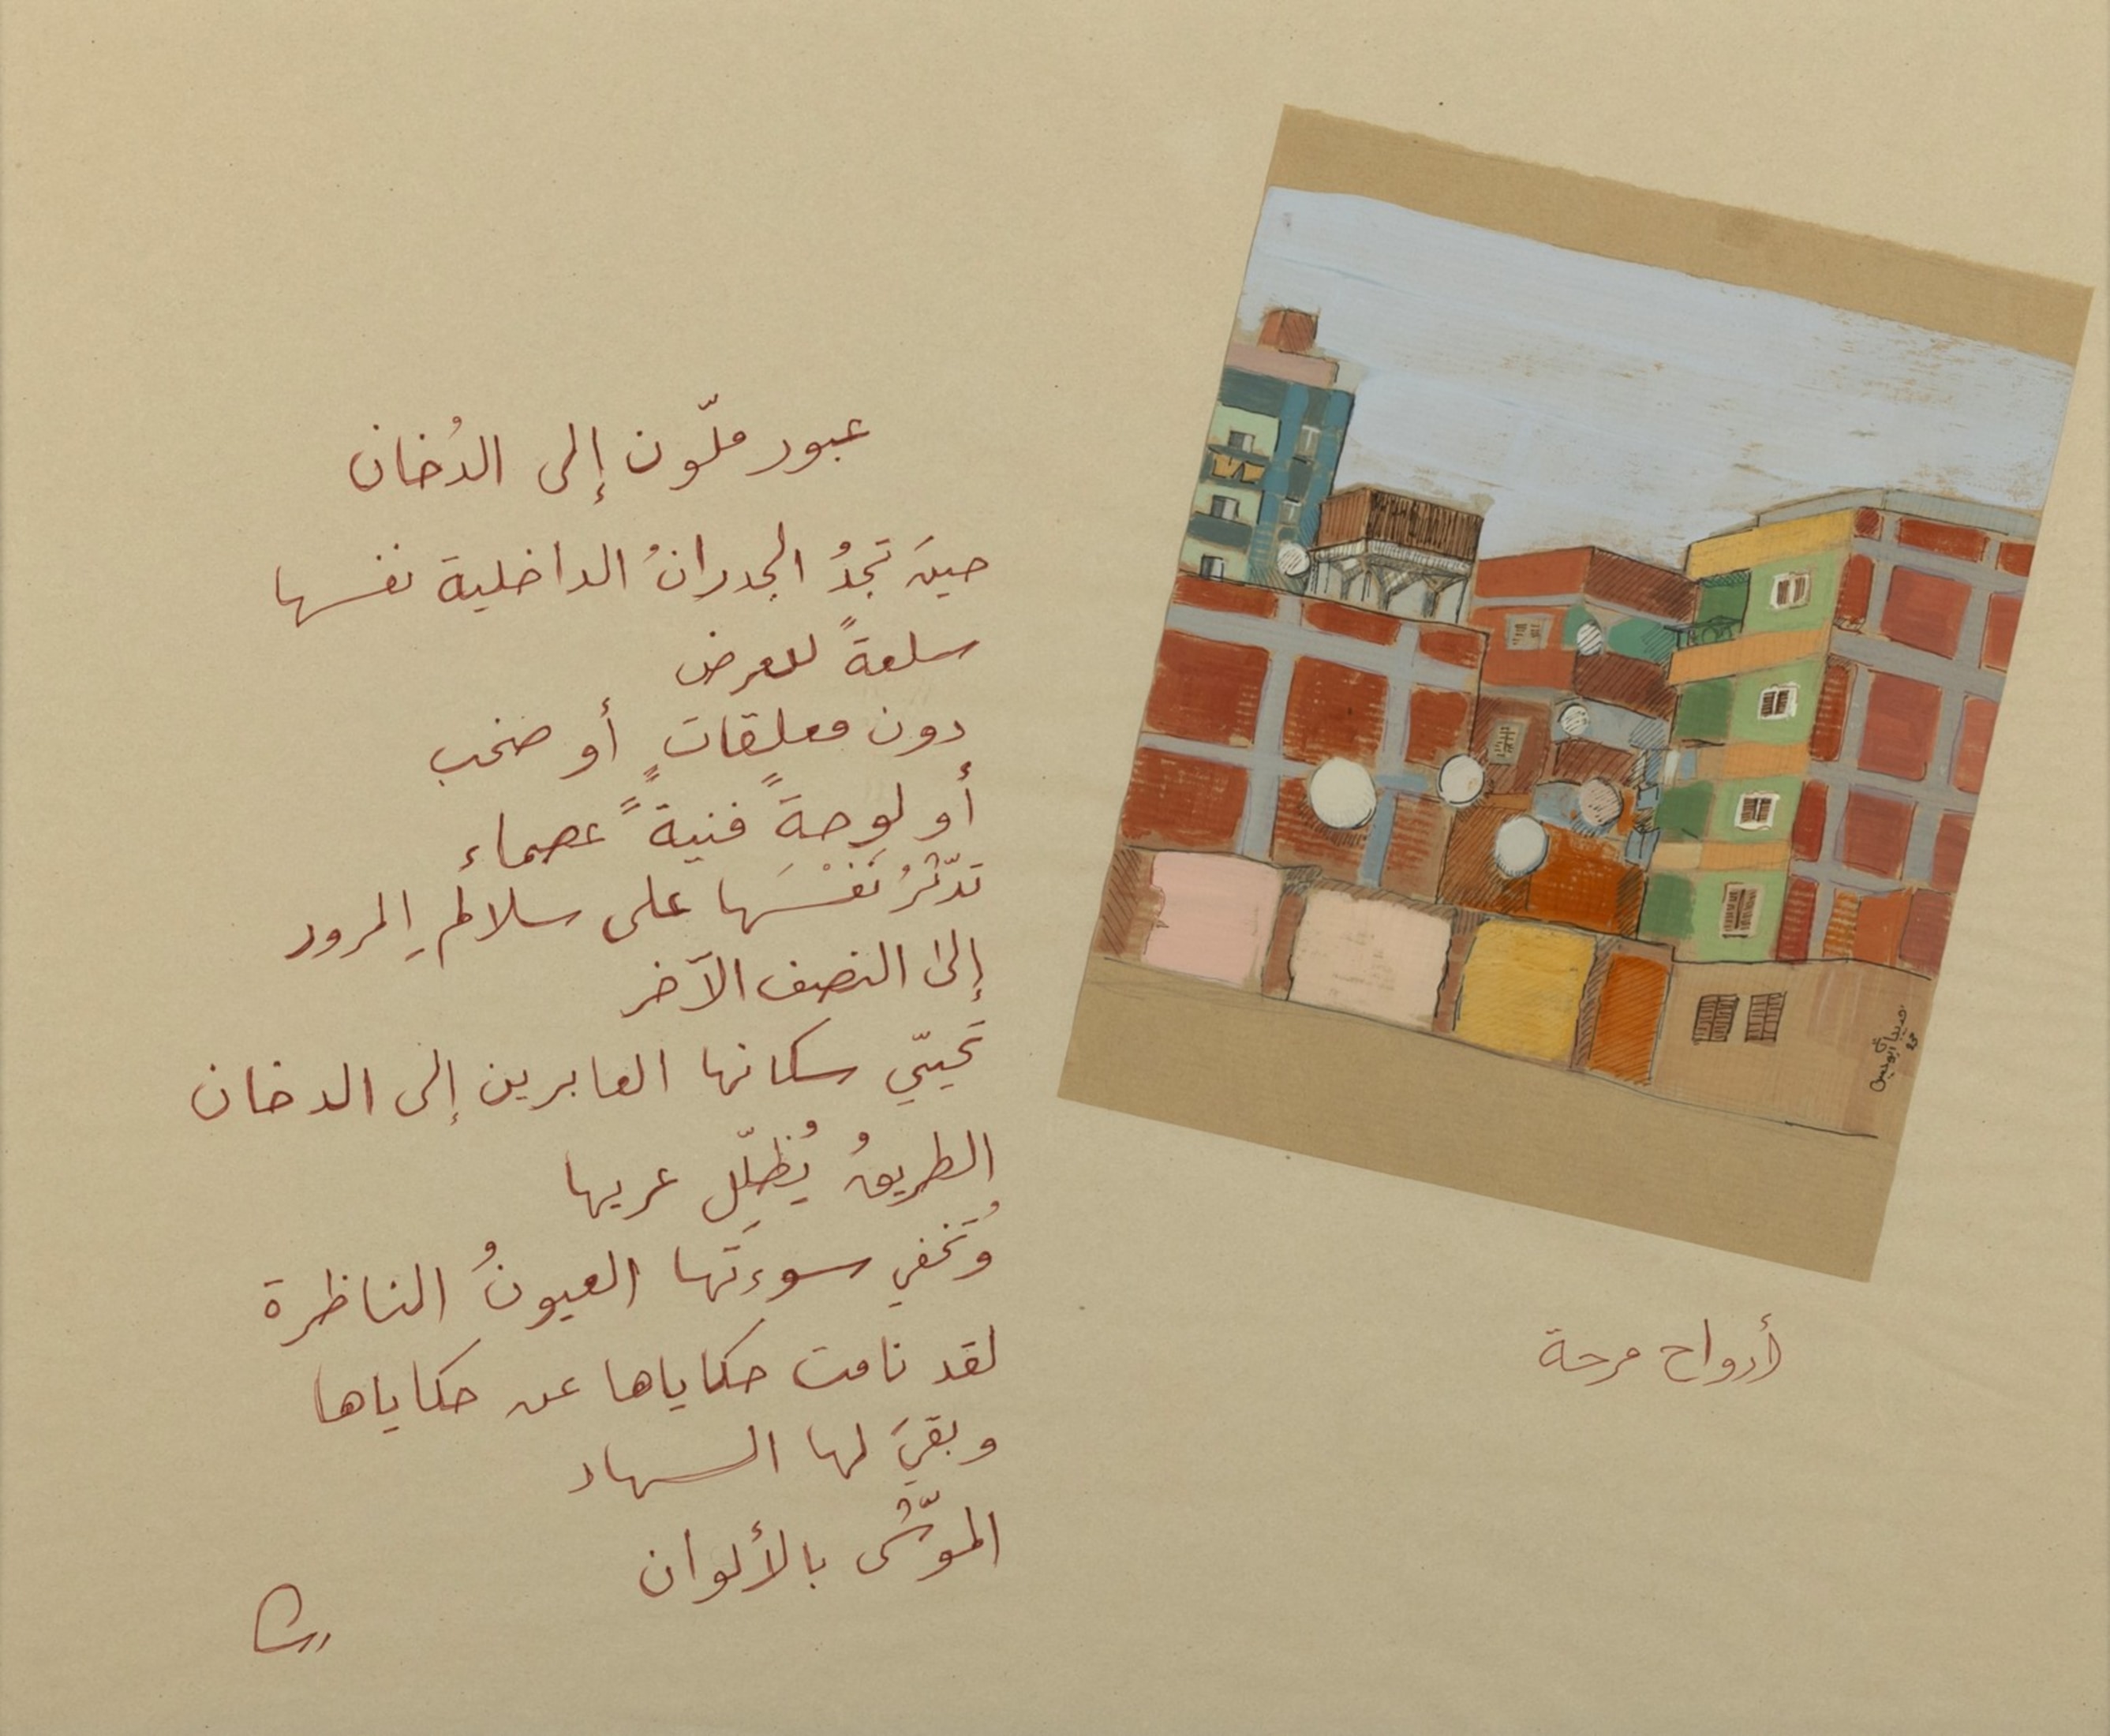 عبور ملّون إلى الدُخان
حينَ تجدُ الجدرانُ الداخلية نفسها
سلعةً للعرض
دون معلقاتٍ أو صخب
أو لوحةً فنيةً عصماء
تدّثرُ نَفْسَها على سلالمِ المرور
إلى النصف الآخر
تحيّي سكانها العابرين إلى الدخان
الطريقُ يُظلِّل عريها
وُتخفي سوءتَها العيونُ الناظرة
لقد نامت حكاياها عن حكاياها
وبقيَ لها السهاد
الموّشى بالألوان
أرواح مرحة